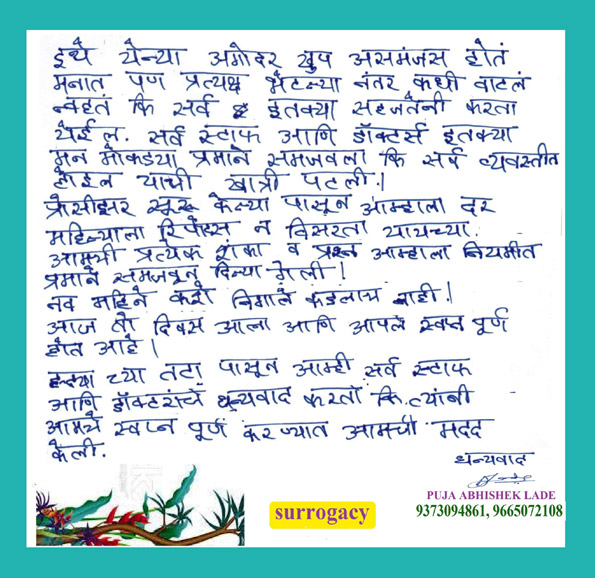 इथे येन्या अगोदर खुप असमंजस होतं
मनात पण प्रत्यक्ष भेटल्या नंतर कधी वाटलं
न्वहतं कि सर्व इतक्या सहजतेनी करता
येईल. सर्व स्टाफ आणि डॉक्टर्स इतक्या
मन मोकळ्या प्रमाने समजवला कि सर्व व्यवस्तीत
होइल याची खात्री पटली!
प्रोसीझर सूरू केल्या पासून आम्हाला दर
महिन्याला रिपोर्ट्स न विसरता यायच्या.
आमची प्रत्येक शंका व प्रश्न आम्हाला नियमीत
प्रमाने समजवून दिल्या गेली!
नव महिने कशे निघाले कळलाच नाही!
आज तो दिवस आला आणि आपलं स्वप्न पूर्ण
होत आहे!
च्या तटा पासून आम्ही सर्व स्टाफ
आणि डॉक्टरांचे धन्यवाद करतो कि त्यांनी
आमचे स्वप्न पूर्ण करण्यात आमची मदद
केली.
धन्यवाद
PUJA ABHISHEK LADE
surrogacy
9373094861, 9665072108